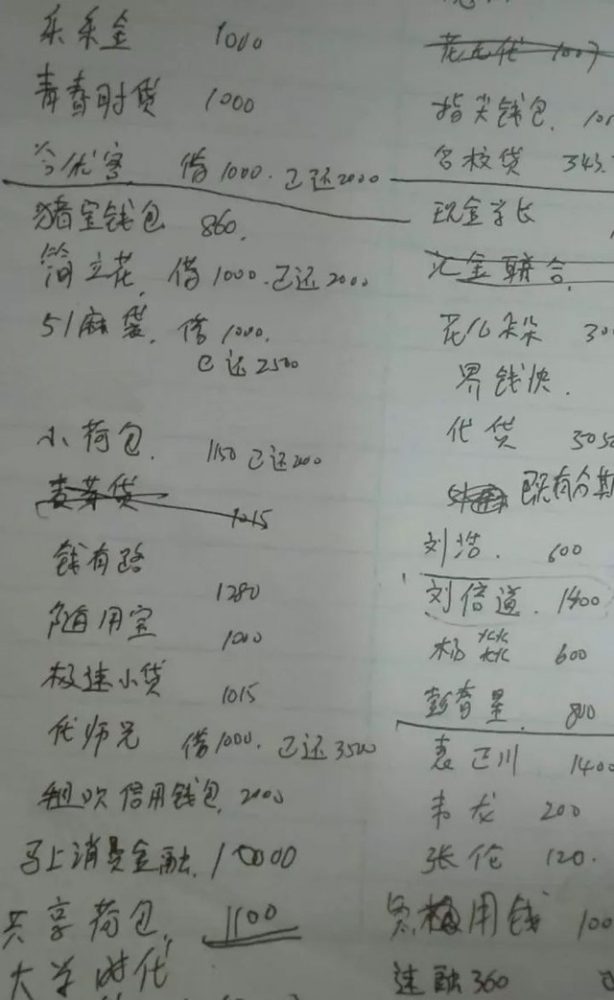 乐乐金 1000
青春时贷 1000
今优客 借1000.已还2000
猪宝钱包 860.
简立花 借1000.已还2000
51麻袋. 借1000.
已还2500
小荷包. 1150 已还2000
麦芽贷 1215
钱有路 1280
随用宝 1000
极速小贷 1015
代师兄 借1000.已还3500
信用钱包. 2000
马上消费金融. 10000
共享荷包, 1100
大学时代
花无代 1007
指尖钱包.
名校贷 343.
现金学长
汇金联合.
花儿朵朵
界钱快.
代货 5050
有分期
刘浩. 600
刘倍道. 1400
杨焱焱 600
彭春星. 800
袁正川 1400
韦龙 200
张伦 120.
用钱
速融360